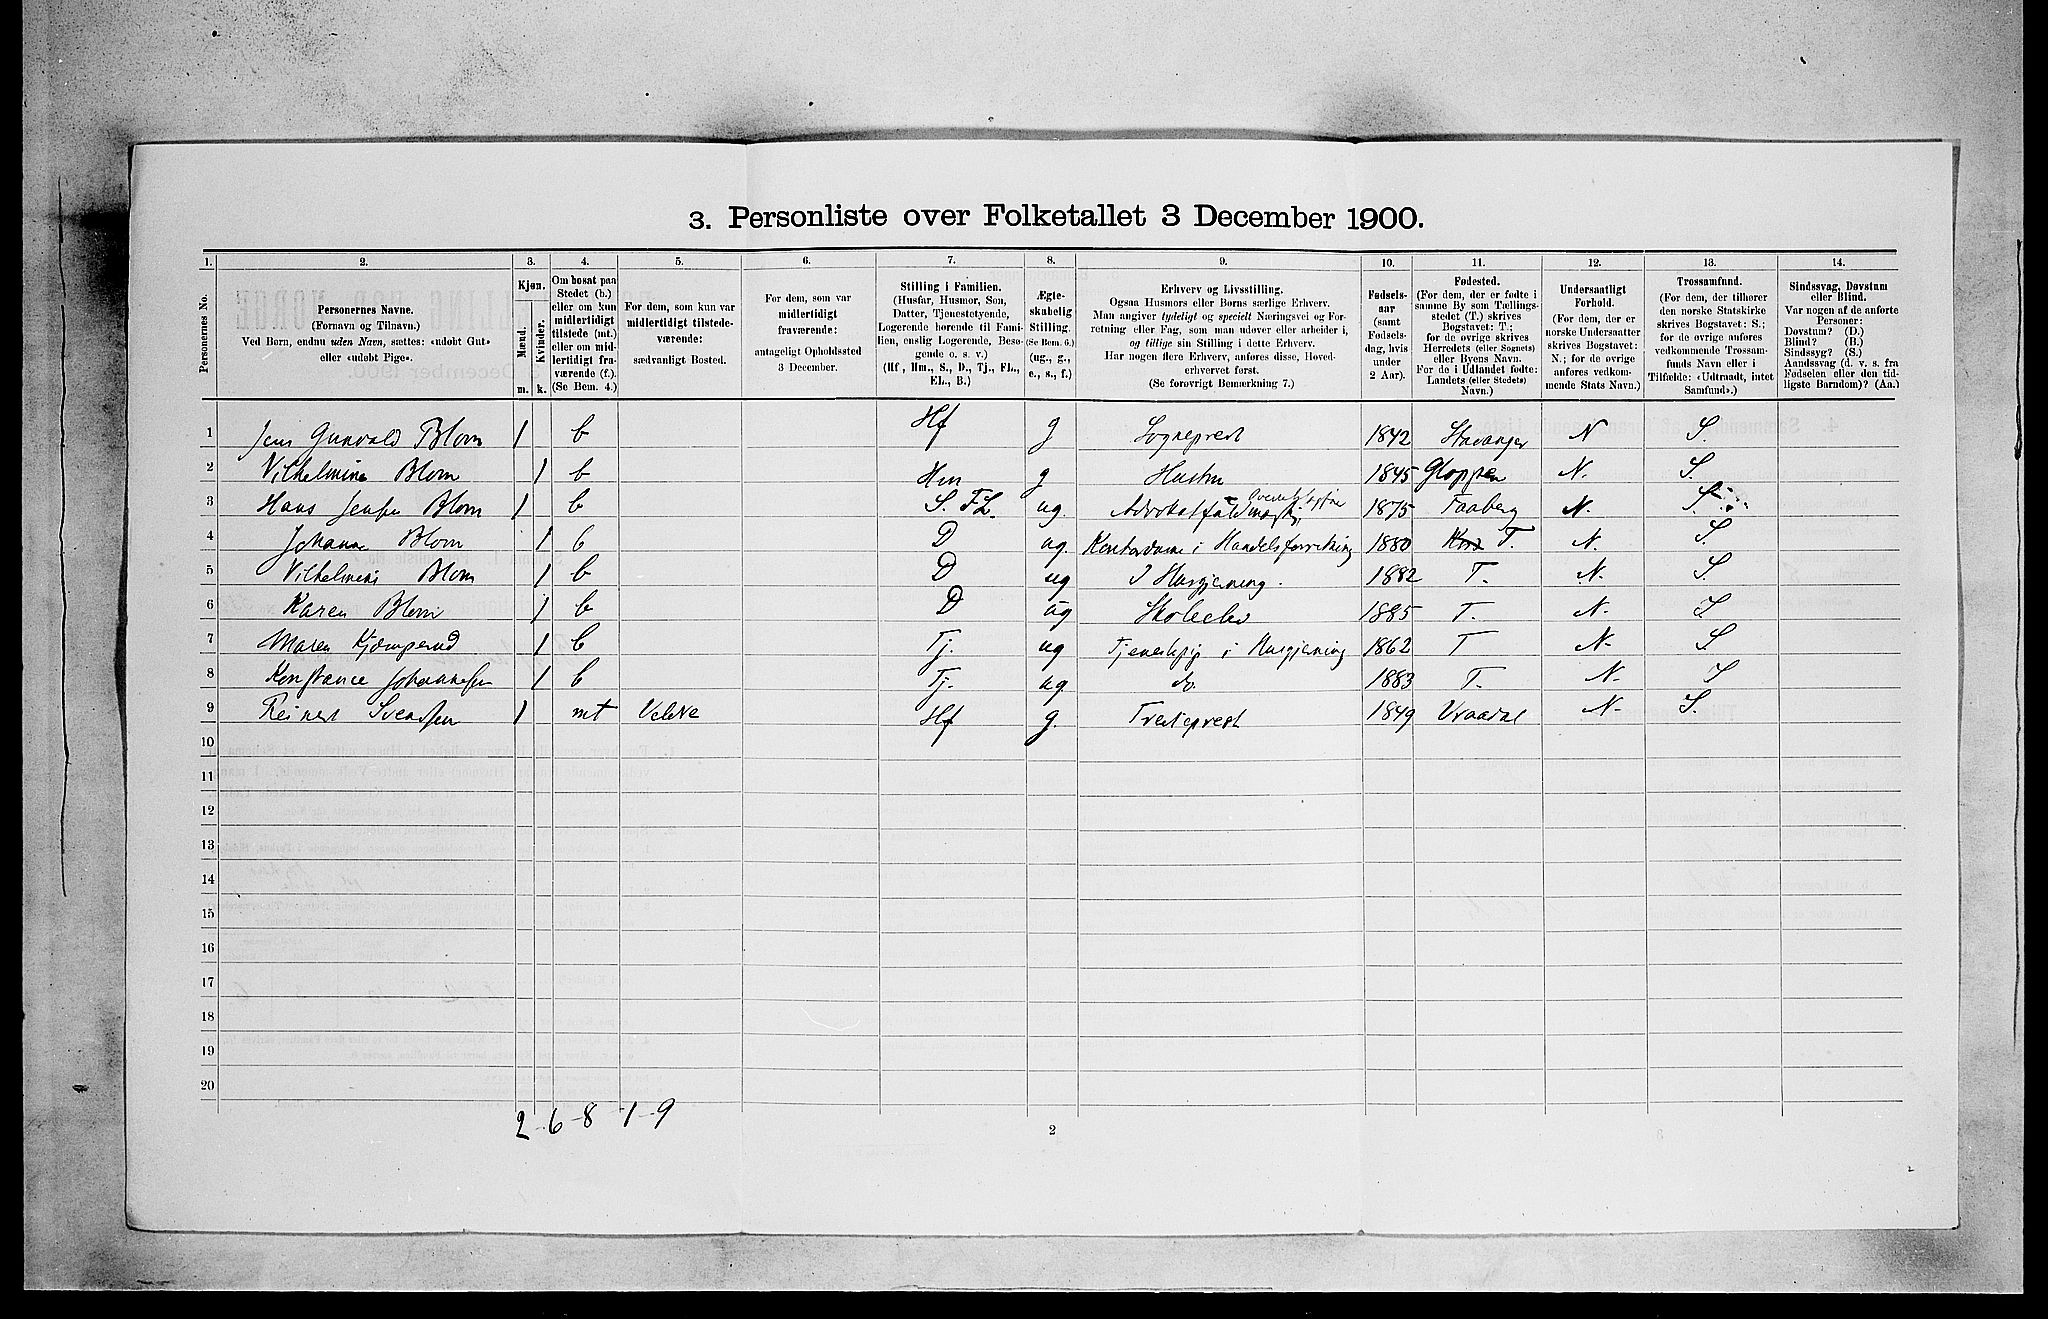 3. Personliste over Folketallet 3 December 1900.
1. 2. 3. 4. 5. 6. 7. 8. 9. 10. 11. 12. 13. 14.
Personernes No.
Personernes Navne.
(Fornavn og Tilnavn.)
Ved Børn, endnu uden Navn, sættes: «udøbt Gut»
eller «udøbt Pige».
Kjøn.
Mænd.
Kvinder.
m. k.
Om bosat paa
Stedet (b.)
eller om kun
midlertidigt
tilstede (mt.)
eller om mid-
lertidigt fra-
værende (f.).
(Se Bem. 4.)
For dem, som kun var
midlertidigt tilstede-
værende:
sædvanligt Bosted.
For dem, som var
midlertidigt
fraværende:
antageligt Opholdssted
3 December.
Stilling i Familien.
(Husfar, Husmor, Søn,
Datter, Tjenestetyende,
Logerende hørende til Fami-
lien, enslig Logerende, Besø-
gende o. s. v.)
(Hf., Hm., S., D., Tj., FL.,
EL., B.)
Ægte-
skabelig
Stilling.
(Se Bem. 6.)
(ug., g.,
e., s., f.)
Erhverv og Livsstilling.
Ogsaa Husmors eller Børns særlige Erhverv.
Man angiver tydeligt og specielt Næringsvei og For-
retning eller Fag, som man udøver eller arbeider i,
og tillige sin Stilling i dette Erhverv.
Har nogen flere Erhverv, anføres disse, Hoved-
erhvervet først.
(Se forøvrigt Bemærkning 7.)
Fødsels-
aar
(samt
Fødsels-
dag, hvis
under
2 Aar).
Fødested.
(For dem, der er fødte i
samme By som Tællings-
stedet (T.) skrives
Bogstavet: T.;
for de øvrige skrives
Herredets (eller Sognets)
eller Byens Navn.
For de i Udlandet fødte:
Landets (eller Stedets)
Navn.)
Undersaatligt
Forhold.
(For dem, der er
norske Undersaatter
skrives Bogstavet:
N.; for de øvrige
anføres vedkom-
mende Stats Navn.)
Trossamfund.
(For dem, der tilhører
den norske Statskirke
skrives Bogstavet: S.;
for de øvrige anføres
vedkommende Trossam-
funds Navn eller i
Tilfælde: «Udtraadt, intet
Samfund».)
Sindssvag, Døvstum
eller Blind.
Var nogen af de anførte
Personer:
Døvstum? (D.)
Blind? (B.)
Sindssyg? (S.)
Aandssvag (d. v. s. fra
Fødselen eller den tid-
ligste Barndom)? (Aa.)
1 Jens Gunvald Blom 1 b Hf g Sogneprest 1842 Stavanger N S.
2 Vilhelmine Blom 1 b Hm g Hustru 1845 Gloppen N. S.
3 Hans Blom 1 b S. FL. ug. 1875 Faaberg N. S.
4 Johanne Blom 1 b D ug. Kontordame i Handelsforretning 1880 T. N. S.
5 Vilhelmine Blom 1 b D ug I Husgjerning. 1882 T. N. S.
6 Karen Blom 1 b D ug Skoleelev 1885 T. N. S
7 Maren Kjomperud 1 b Tj. ug Tjenestepige i Husgjerning 1862 T N. S
8 Konstance Johannesen 1 b Tj. ug do. 1883 T. N. S
9 Reinert Svensen 1 mt Hf g. 1849 Vraadal N. S.
10
11
12
13
14
15
16
17
18
19
20
2-6-8-1-9
2
2